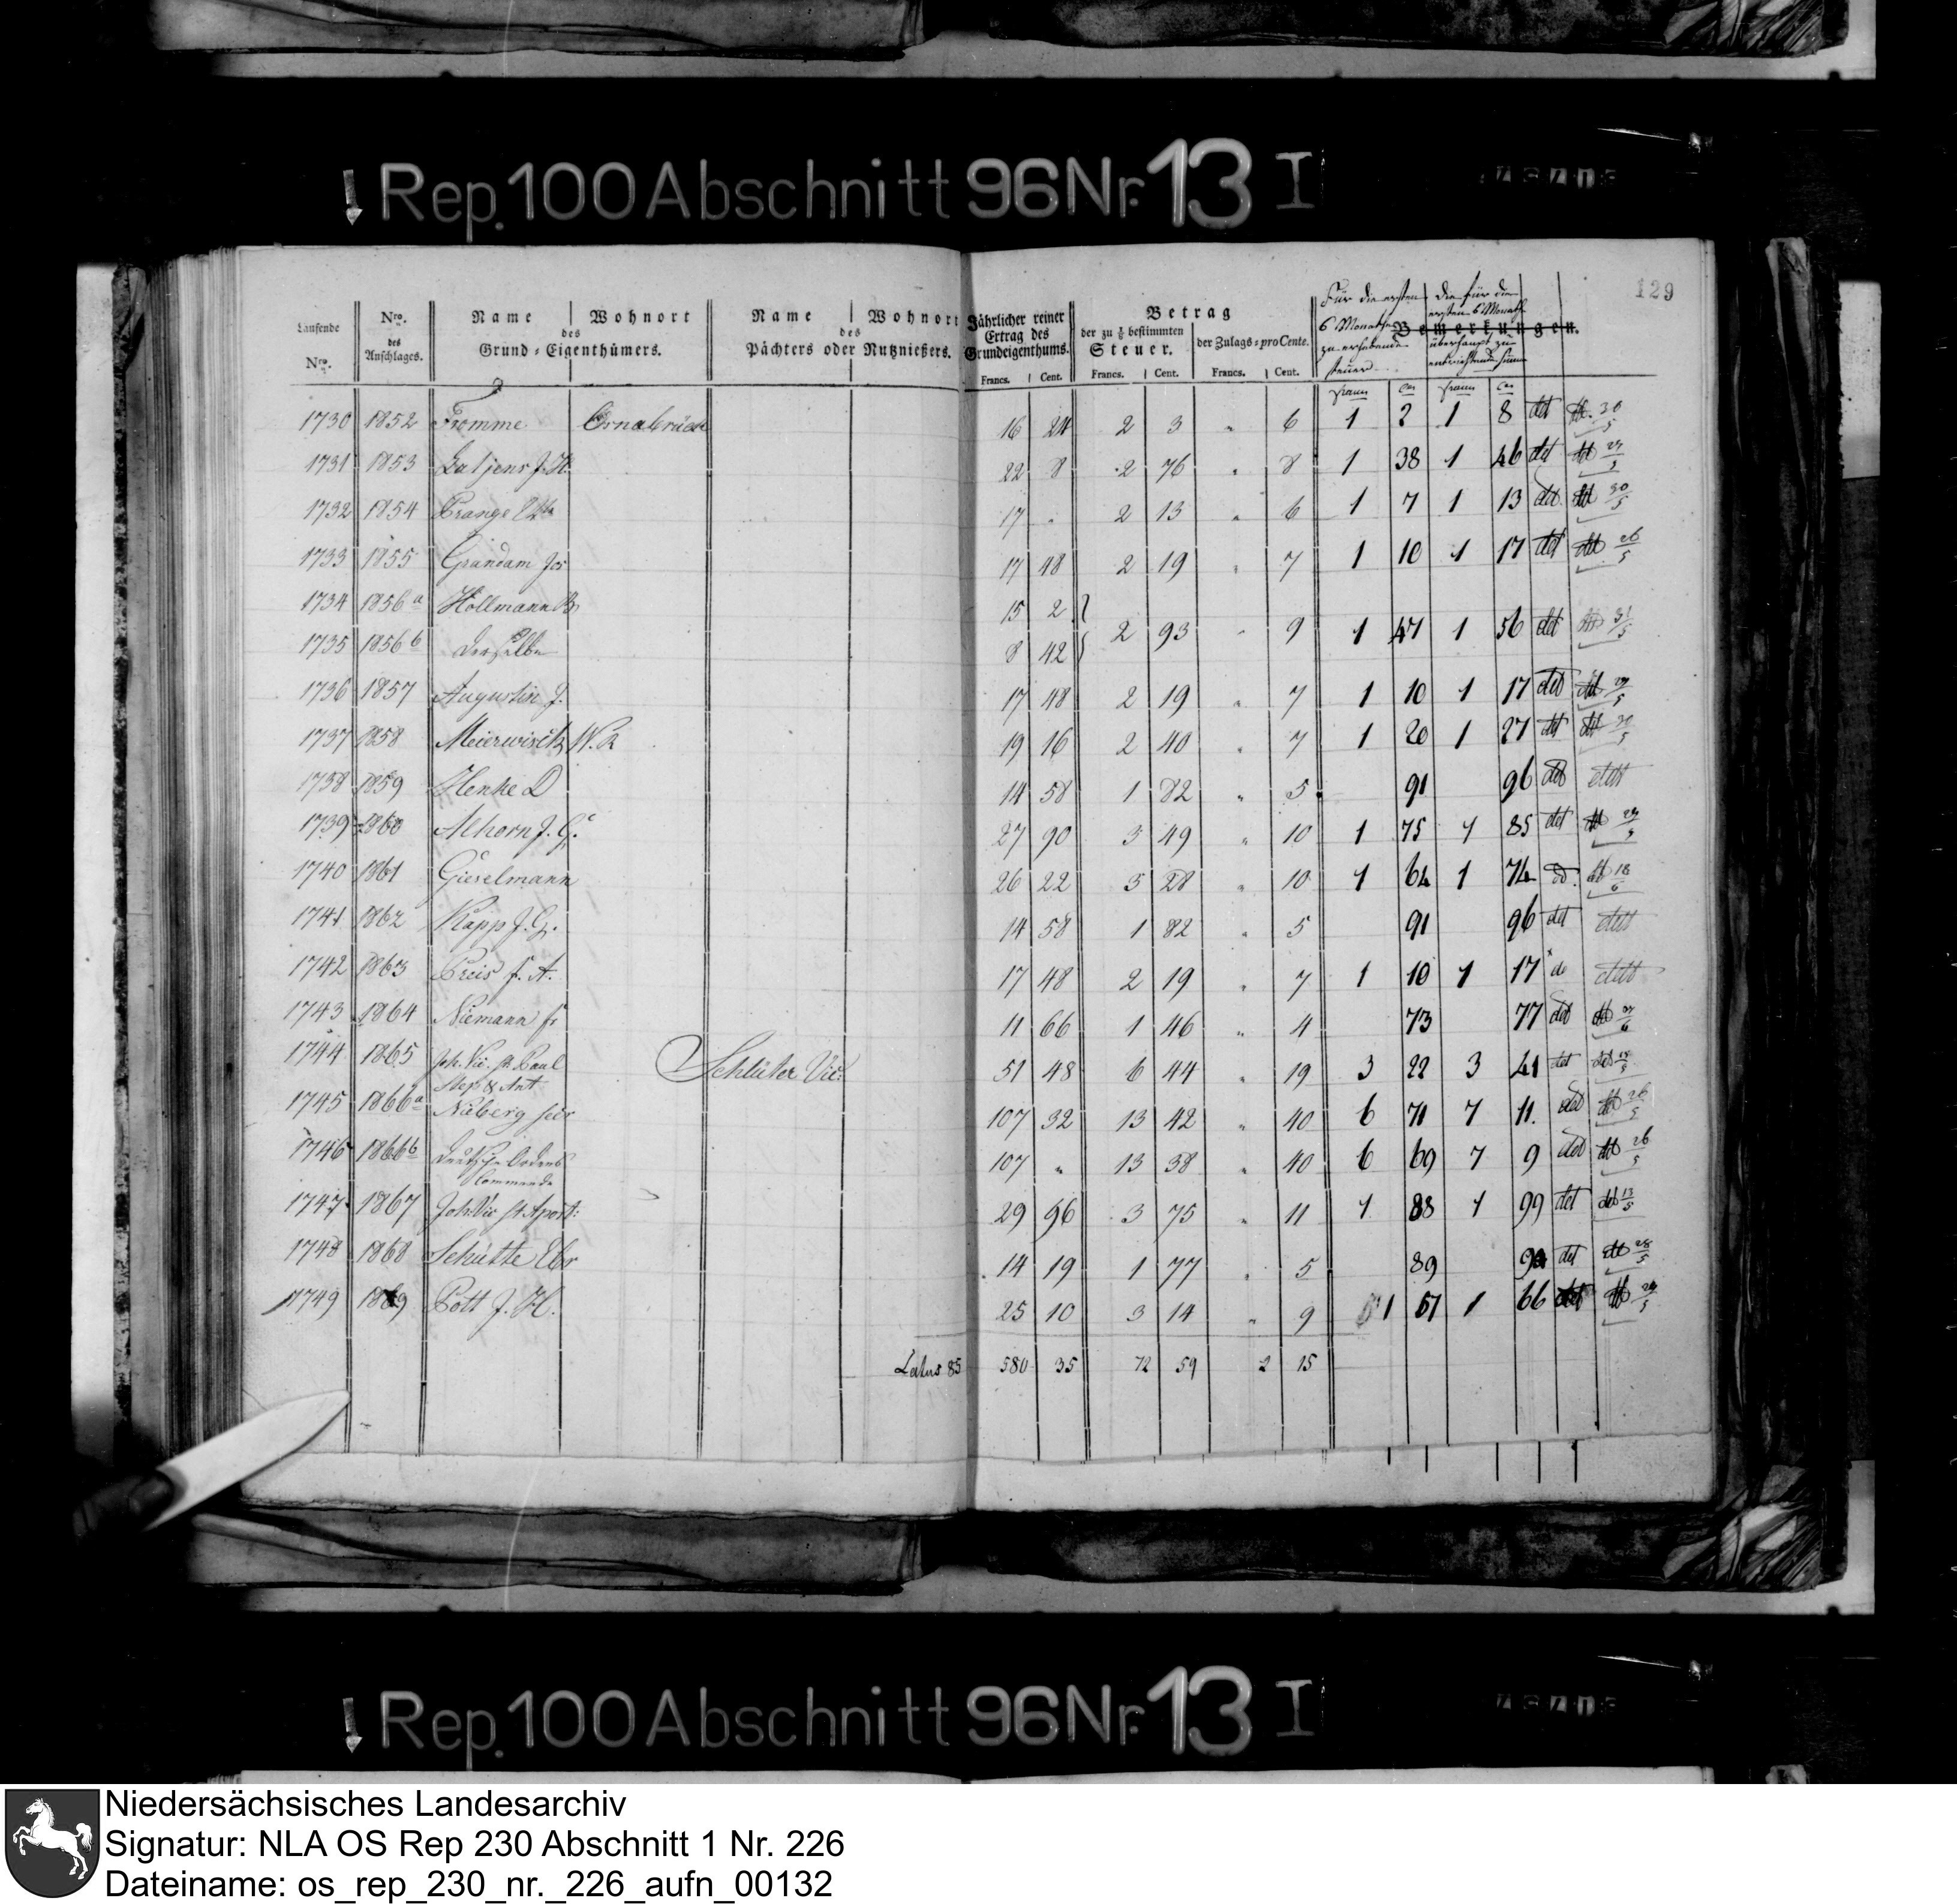 Rep. 100 Abschnitt 96 Nr. 13 I
129
Laufende Nro.
Nro. des Anschlages.
Name Wohnort
des
Grund-Eigenthümers.
Name Wohnort
des
Pächters oder Nutznießers.
Jährlicher reiner Ertrag des Grundeigenthums.
Francs. Cent.
Betrag
der zu ⅛ bestimmten Steuer.
Francs. Cent.
der Zulags-pro Cente.
Francs. Cent.
Für die ersten 6 Monathe zu erhebende Steuer
die für die ersten 6 Monath überhaupt zu entrichtende Summe
Bemerkungen.
1730 1852 Fromme Osnabrück 16 24 2 3 " 6 1 2 1 8 det 30/5
1731 1853 Latjens J. H. 22 8 2 76 " 8 1 38 1 46 det 27/5
1732 1854 Prange 17 " 2 13 " 6 1 7 1 13 det 30/5
1733 1855 Grandam Jos 17 48 2 19 " 7 1 10 1 17 det 26/5
1734 1856a Hollmann 15 2
1735 1856b derselbe 8 42 2 93 " 9 1 47 1 56 det 31/5
1736 1857 Augustin J. 17 48 2 19 " 7 1 10 1 17 det 27/5
1737 1858 Meierwisch W. R 19 16 2 40 " 7 1 20 1 27 det 30/5
1738 1859 Henke D 14 58 1 82 " 5 91 96 det
1739 1860 Ahorn J. G. 27 90 3 49 " 10 1 75 1 85 det 29/5
1740 1861 Gieselmann 26 22 3 28 " 10 1 64 1 74 18/6
1741 1862 Kapp J. G. 14 58 1 82 " 5 91 96 det
1742 1863 Preis F. A. 17 48 2 19 " 7 1 10 1 17
1743 1864 Niemann Fr 11 66 1 46 " 4 73 77 det
1744 1865 Joh. Vic. St. Paul Schlüter Vic: 51 48 6 44 " 19 3 22 3 41 det
Step & Ant
1745 1866a Nieberg 107 32 13 42 " 40 6 71 7 11 det 26/5
1746 1866b Deutsche Ordens 107 " 13 38 " 40 6 69 7 9 det 26/5
Commende
1747 1867 Joh. Vic St Apost: 29 96 3 75 " 11 1 88 1 99 det 13/5
1748 1868 Schütte Ebr 14 19 1 77 " 5 89 94 det 28/5
1749 1869 Pott J. H. 25 10 3 14 " 9 1 57 1 66 det
Latus 85 580 35 72 59 2 15
Rep. 100 Abschnitt 96 Nr. 13 I
Niedersächsisches Landesarchiv
Signatur: NLA OS Rep 230 Abschnitt 1 Nr. 226
Dateiname: os_rep_230_nr._226_aufn_00132